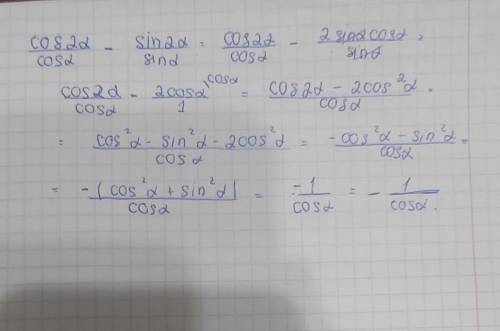 cos2α/cosα - sin2α/sinα = cos2α/cosα - 2sinαcosα/sinα =
cos2α/cosα - 2cosα/1 ^cosα = (cos2α - 2cos²α)/cosα =
= (cos²α - sin²α - 2cos²α)/cosα = (-cos²α - sin²α)/cosα =
= -(cos²α + sin²α)/cosα = -1/cosα = - 1/cosα.